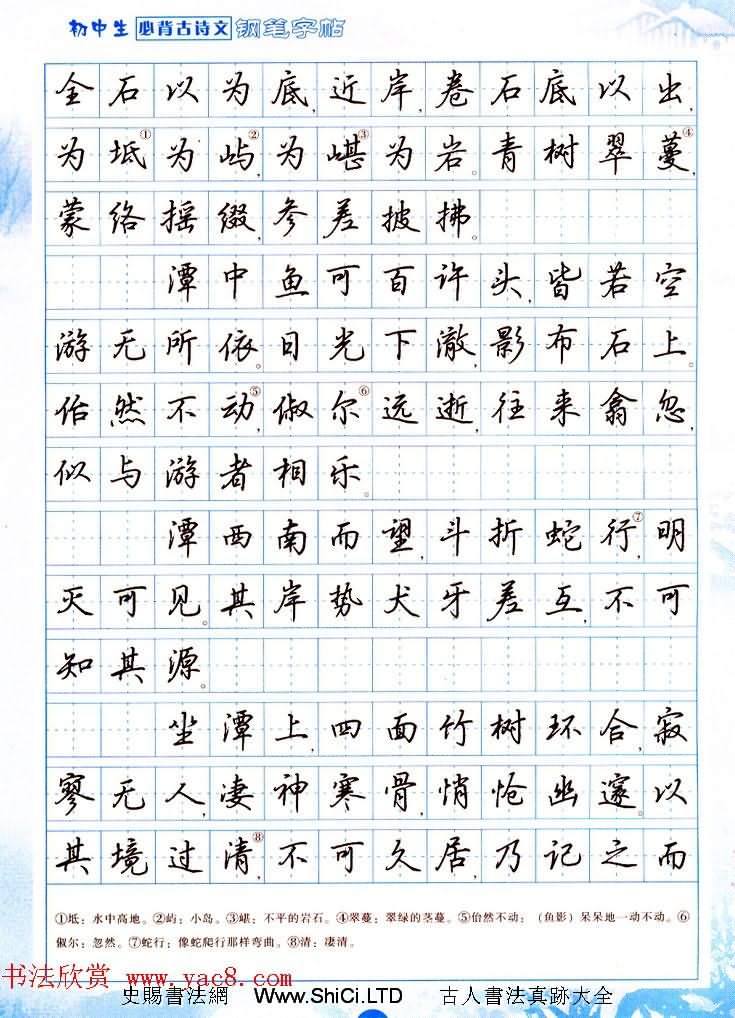 初中生 必背古诗文 钢笔字帖
全石以为底,近岸,卷石底以出,
为坻①为屿,②为嵁③为岩。青树翠蔓,④
蒙络摇缀,参差披拂。
潭中鱼可百许头,皆若空
游无所依。日光下澈,影布石上。
佁然不动,⑤俶尔⑥远逝,往来翕忽,
似与游者相乐。
潭西南而望,斗折蛇行,⑦明
灭可见。其岸势犬牙差互,不可
知其源。
坐潭上,四面竹树环合,寂
寥无人,凄神寒骨,悄怆幽邃。以
其境过清,⑧不可久居,乃记之而
①坻:水中高地。②屿:小岛。③嵁:不平的岩石。④翠蔓:翠绿的茎蔓。⑤佁然不动:(鱼影)呆呆地一动不动。⑥
俶尔:忽然。⑦蛇行:像蛇爬行那样弯曲。⑧清:凄清。
书法欣赏 www.yac8.com
史賜書法網 Www.ShiCi.LTD 古人書法真跡大全